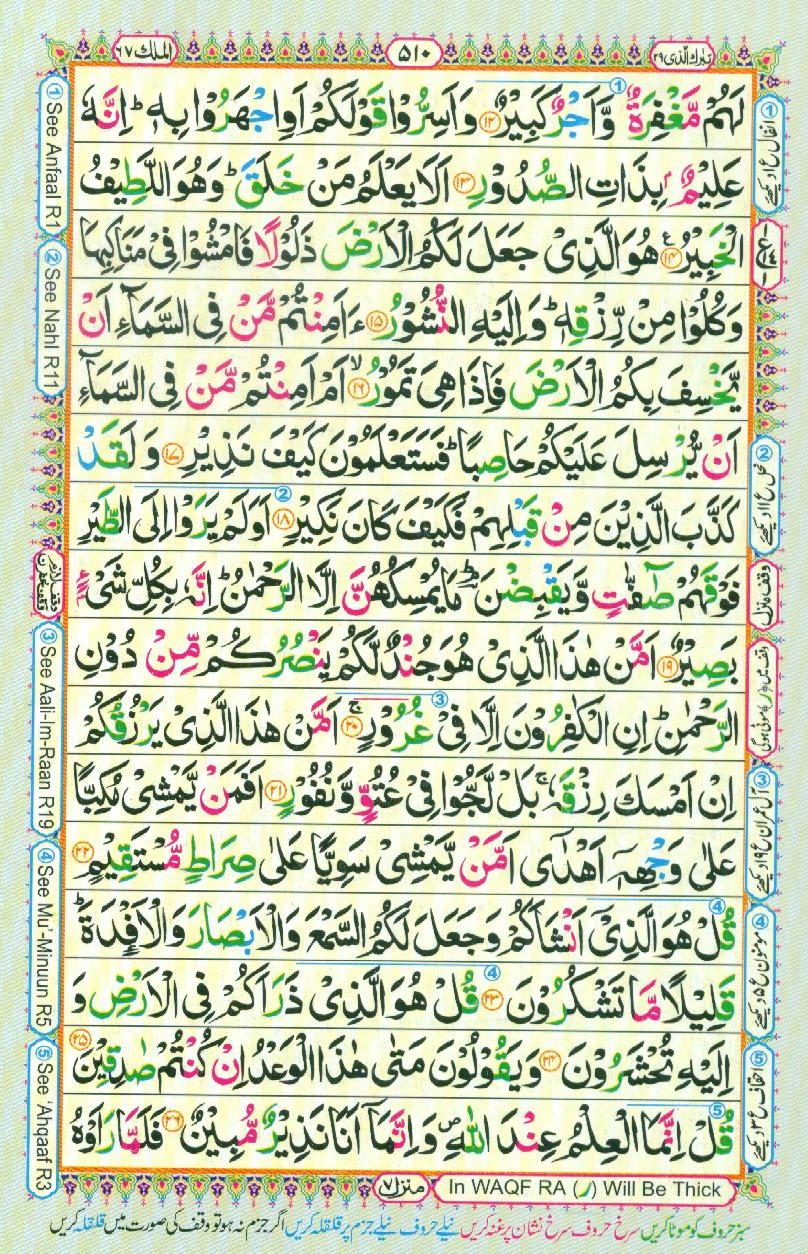 تبٰرك الذی ۲۹
۵۱۰
الملك ۶۷
لَهُمْ مَّغْفِرَةٌ وَّاَجْرٌ كَبِيْرٌ ۝۱۲ وَاَسِرُّوْا قَوْلَكُمْ اَوِاجْهَرُوْا بِهٖ ؕ اِنَّهٗ
عَلِيْمٌۢ بِذَاتِ الصُّدُوْرِ ۝۱۳ اَلَا يَعْلَمُ مَنْ خَلَقَ ؕ وَهُوَ اللَّطِيْفُ
الْخَبِيْرُ ۝۱۴ هُوَ الَّذِىْ جَعَلَ لَكُمُ الْاَرْضَ ذَلُوْلًا فَامْشُوْا فِىْ مَنَاكِبِهَا
وَكُلُوْا مِنْ رِّزْقِهٖ ؕ وَاِلَيْهِ النُّشُوْرُ ۝۱۵ ءَاَمِنْتُمْ مَّنْ فِى السَّمَآءِ اَنْ
يَّخْسِفَ بِكُمُ الْاَرْضَ فَاِذَا هِىَ تَمُوْرُ ۝۱۶ اَمْ اَمِنْتُمْ مَّنْ فِى السَّمَآءِ
اَنْ يُّرْسِلَ عَلَيْكُمْ حَاصِبًا ؕ فَسَتَعْلَمُوْنَ كَيْفَ نَذِيْرِ ۝۱۷ وَلَقَدْ
كَذَّبَ الَّذِيْنَ مِنْ قَبْلِهِمْ فَكَيْفَ كَانَ نَكِيْرِ ۝۱۸ اَوَلَمْ يَرَوْا اِلَى الطَّيْرِ
فَوْقَهُمْ صٰٓفّٰتٍ وَّيَقْبِضْنَ ؔؕ مَا يُمْسِكُهُنَّ اِلَّا الرَّحْمٰنُ ؕ اِنَّهٗ بِكُلِّ شَىْءٍۢ
بَصِيْرٌ ۝۱۹ اَمَّنْ هٰذَا الَّذِىْ هُوَ جُنْدٌ لَّكُمْ يَنْصُرُكُمْ مِّنْ دُوْنِ
الرَّحْمٰنِ ؕ اِنِ الْكٰفِرُوْنَ اِلَّا فِىْ غُرُوْرٍ ۝۲۰ اَمَّنْ هٰذَا الَّذِىْ يَرْزُقُكُمْ
اِنْ اَمْسَكَ رِزْقَهٗ ۚ بَلْ لَّجُّوْا فِىْ عُتُوٍّ وَّنُفُوْرٍ ۝۲۱ اَفَمَنْ يَّمْشِىْ مُكِبًّا
عَلٰى وَجْهِهٖۤ اَهْدٰٓى اَمَّنْ يَّمْشِىْ سَوِيًّا عَلٰى صِرَاطٍ مُّسْتَقِيْمٍ ۝۲۲
قُلْ هُوَ الَّذِىْۤ اَنْشَاَكُمْ وَجَعَلَ لَكُمُ السَّمْعَ وَالْاَبْصَارَ وَالْاَفْـِٕدَةَ ؕ
قَلِيْلًا مَّا تَشْكُرُوْنَ ۝۲۳ قُلْ هُوَ الَّذِىْ ذَرَاَكُمْ فِى الْاَرْضِ وَ
اِلَيْهِ تُحْشَرُوْنَ ۝۲۴ وَيَقُوْلُوْنَ مَتٰى هٰذَا الْوَعْدُ اِنْ كُنْتُمْ صٰدِقِيْنَ ۝۲۵
قُلْ اِنَّمَا الْعِلْمُ عِنْدَ اللّٰهِ ۪ وَاِنَّمَاۤ اَنَا نَذِيْرٌ مُّبِيْنٌ ۝۲۶ فَلَمَّا رَاَوْهُ
① انفال ع ۱ دیکھئے
② نحل ع ۱۱ دیکھئے
وقف منزل
③ آل عمران ع ۱۹ دیکھئے
④ مومنون ع ۵ دیکھئے
⑤ احقاف ع ۳ دیکھئے
① See Anfaal R1
② See Nahl R11
③ See Aali-Im-Raan R19
④ See Mu'-Minuun R5
⑤ See 'Ahqaaf R3
منزل ۷
In WAQF RA (ر) Will Be Thick
سبز حروف کو موٹا کریں سرخ حروف سرخ نشان پر غنہ کریں نیلے حروف نیلے جزم پر قلقلہ کریں اگر جزم نہ ہو تو وقف کی صورت میں قلقلہ کریں